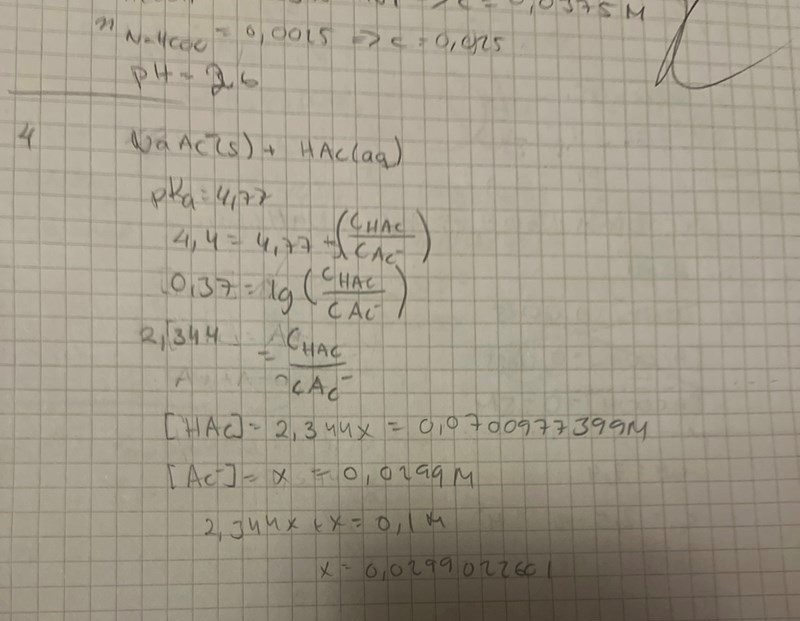 => c = 0,0375 M
n N-4COC = 0,0025 => c = 0,025
pH = 2,6
4 NaAc(s) + HAc(aq)
pKa = 4,77
4,4 = 4,77 + (CHAC/CAC-)
0,37 = lg (CHAC/CAC-)
2,344 = CHAC/CAC-
[HAc] = 2,344x = 0,0700977399M
[Ac-] = x = 0,0299M
2,344x + x = 0,1M
x = 0,0299022601